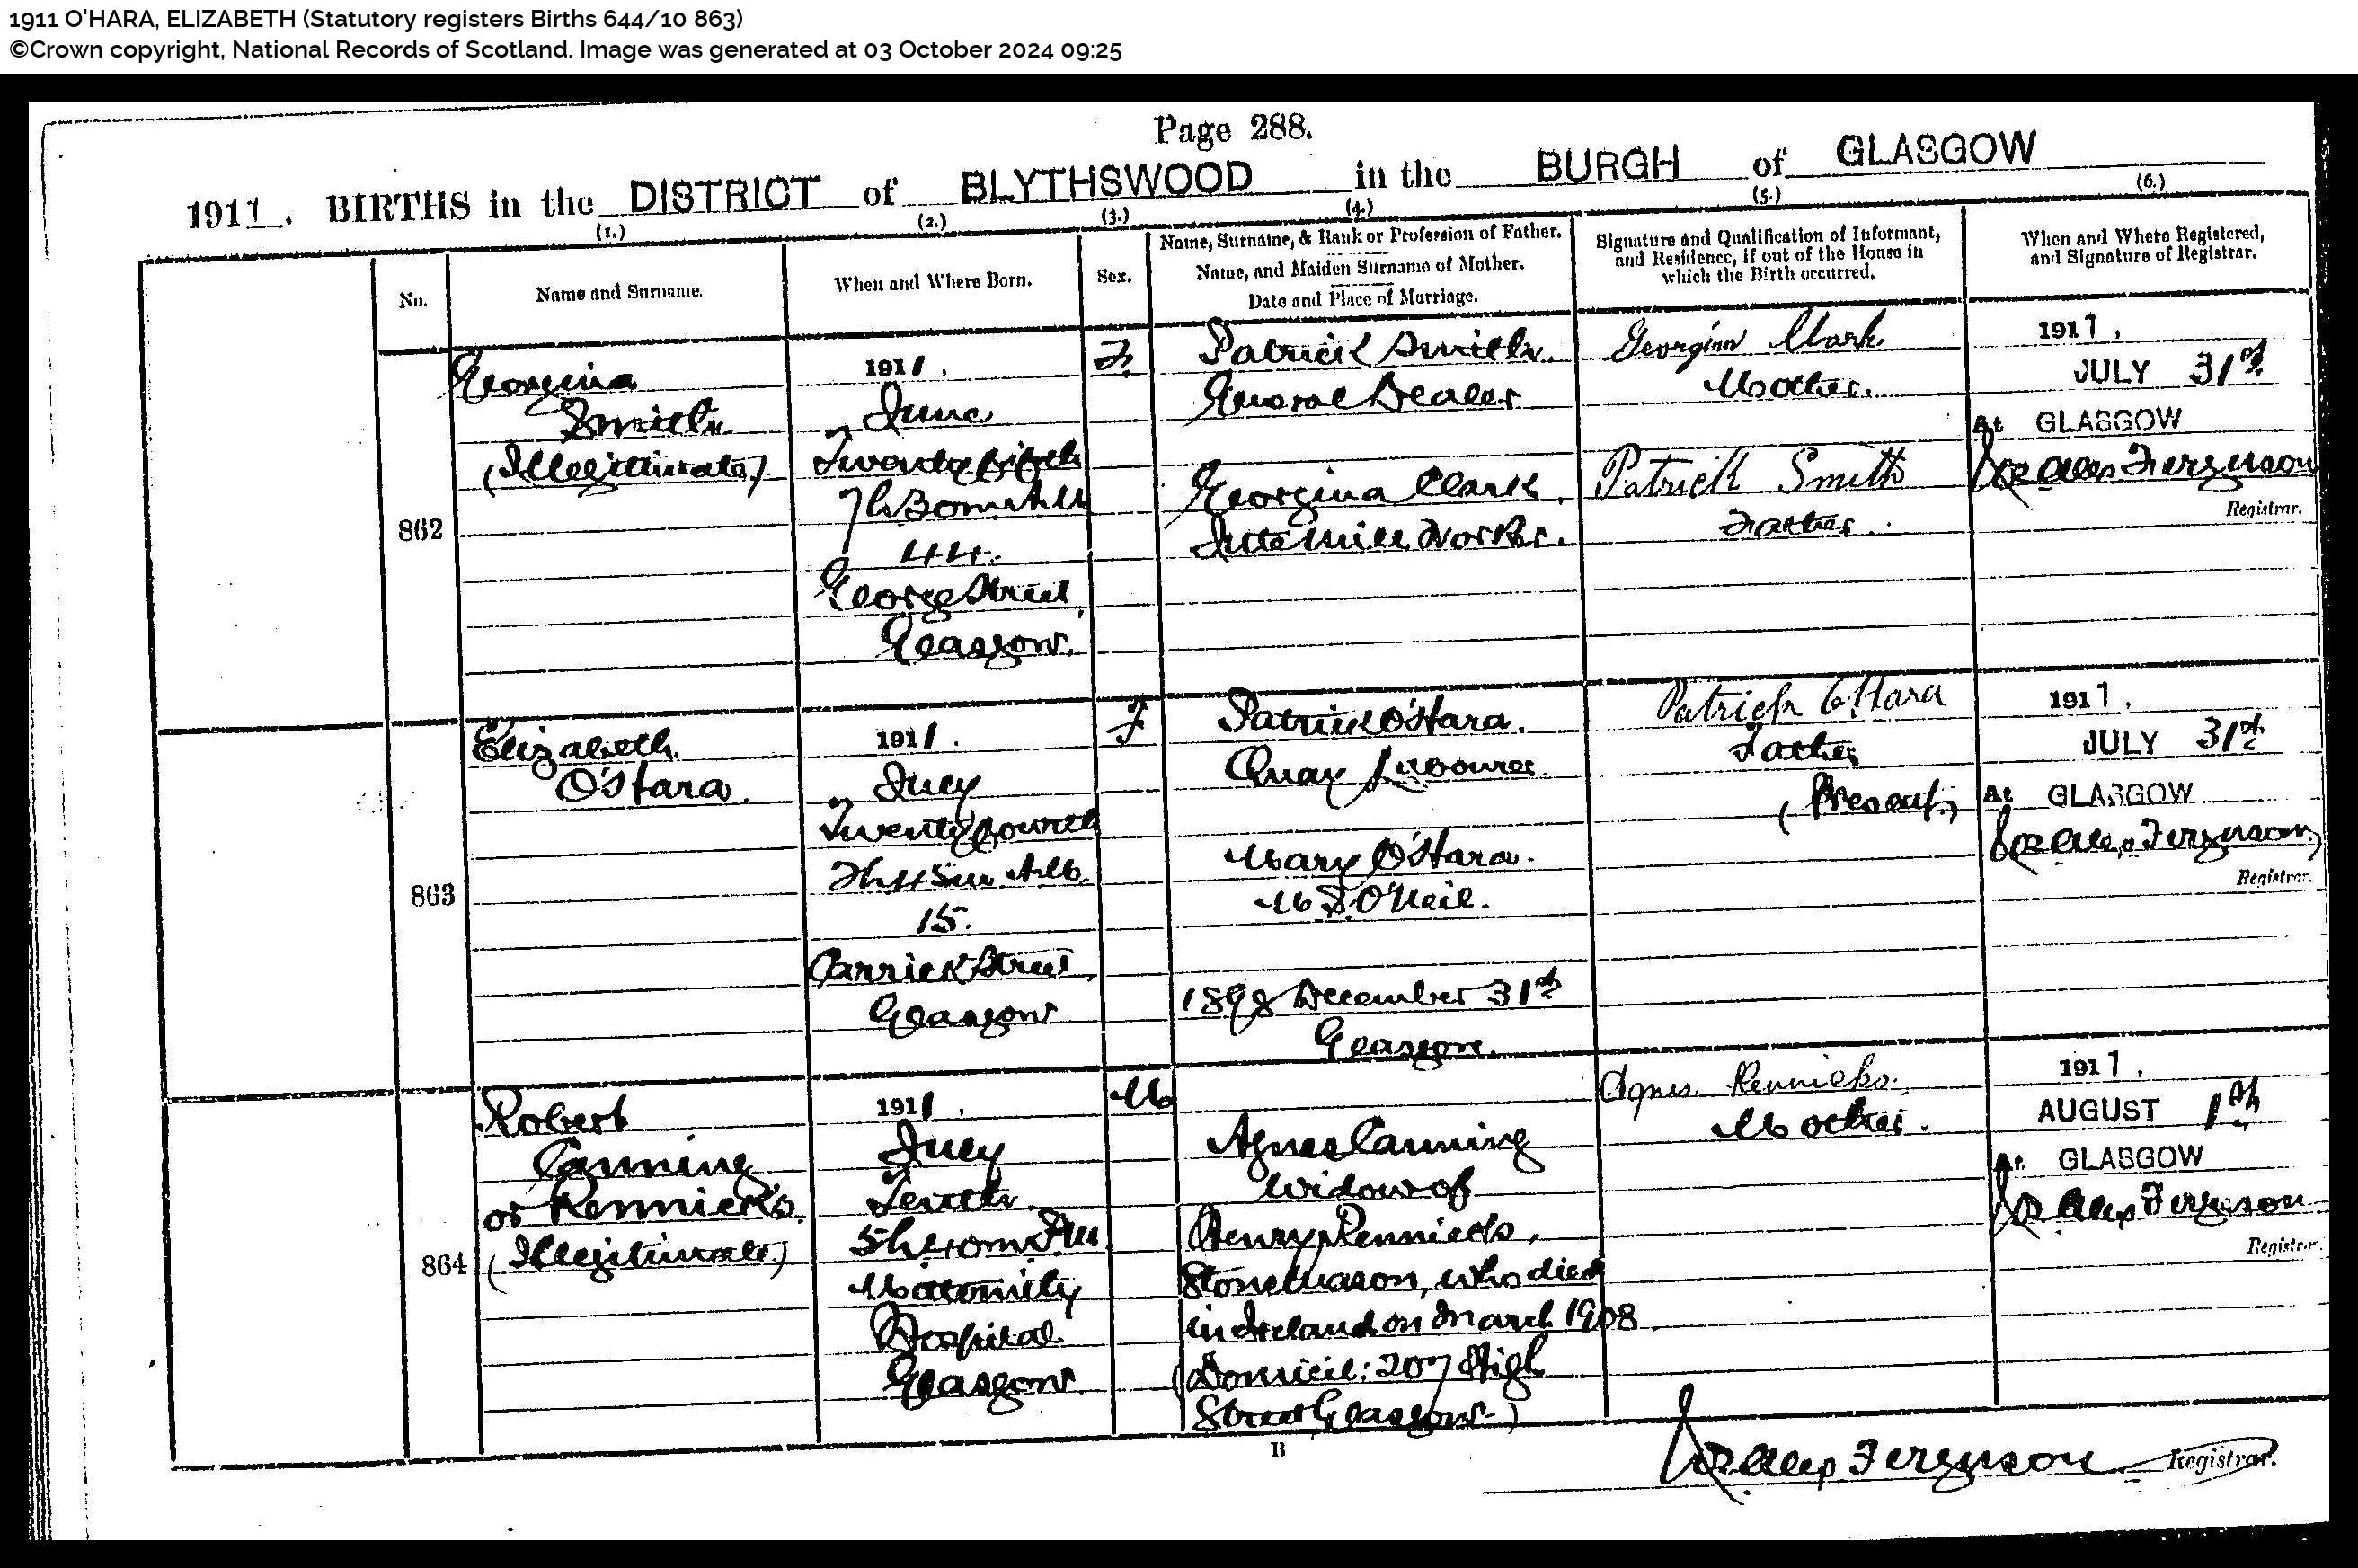 1911 O'HARA, ELIZABETH (Statutory registers Births 644/10 863)
©Crown copyright, National Records of Scotland. Image was generated at 03 October 2024 09:25
Page 288.
1911. BIRTHS in the DISTRICT of BLYTHSWOOD in the BURGH of GLASGOW
(1.) (2.) (3.) (4.) (5.) (6.)
No.
Name and Surname.
When and Where Born.
Sex.
Name, Surname, & Rank or Profession of Father.
Name, and Maiden Surname of Mother.
Date and Place of Marriage.
Signature and Qualification of Informant,
and Residence, if out of the House in
which the Birth occurred.
When and Where Registered,
and Signature of Registrar.
862
Georgina
Smith
(Illegitimate)
1911.
June
Twenty fifth
7h 30m A.M.
44
George Street,
Glasgow.
F.
Patrick Smith.
General Dealer
Georgina Clark,
Jute Mill Worker.
Georgina Clark.
Mother.
Patrick Smith
Father.
1911.
JULY 31st
At GLASGOW
Ferguson
Registrar.
863
Elizabeth
O'Hara.
1911.
July
Twenty fourth
A.M.
15.
Carrick Street,
Glasgow
F
Patrick O'Hara.
Quay Labourer.
Mary O'Hara.
M.S. O'Neil.
1898 December 31st
Glasgow.
Patrick O'Hara
Father
(Present)
1911.
JULY 31st
At GLASGOW
Ferguson
Registrar.
864
Robert
Canning
or Rennicks.
(Illegitimate)
1911.
July
Tenth.
Maternity
Hospital
Glasgow.
M
Agnes Canning
Widow of
Henry Rennicks,
Stonemason, who died
in Ireland on March 1908.
(Domicil: 207 High
Street Glasgow.)
Agnes Rennicks.
Mother.
1911.
AUGUST 1st
At GLASGOW
Ferguson
Registrar.
B
Ferguson Registrar.